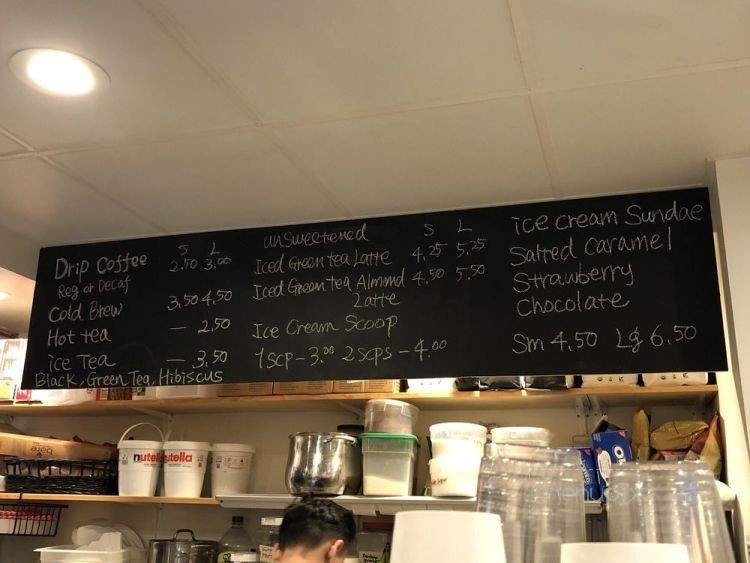 S L
Drip Coffee 2.50 3.00
Reg or Decaf
Cold Brew 3,50 4,50
Hot tea — 2,50
ice Tea — 3,50
Black, Green Tea, Hibiscus
unsweetened S L
Iced Green tea Latte 4,25 5,25
Iced Green tea Almond 4,50 5,50
Latte
Ice Cream Scoop
1 scp - 3.00 2 scps - 4.00
ice cream Sundae
Salted Caramel
Strawberry
Chocolate
Sm 4,50 Lg 6,50
nutella
nutella